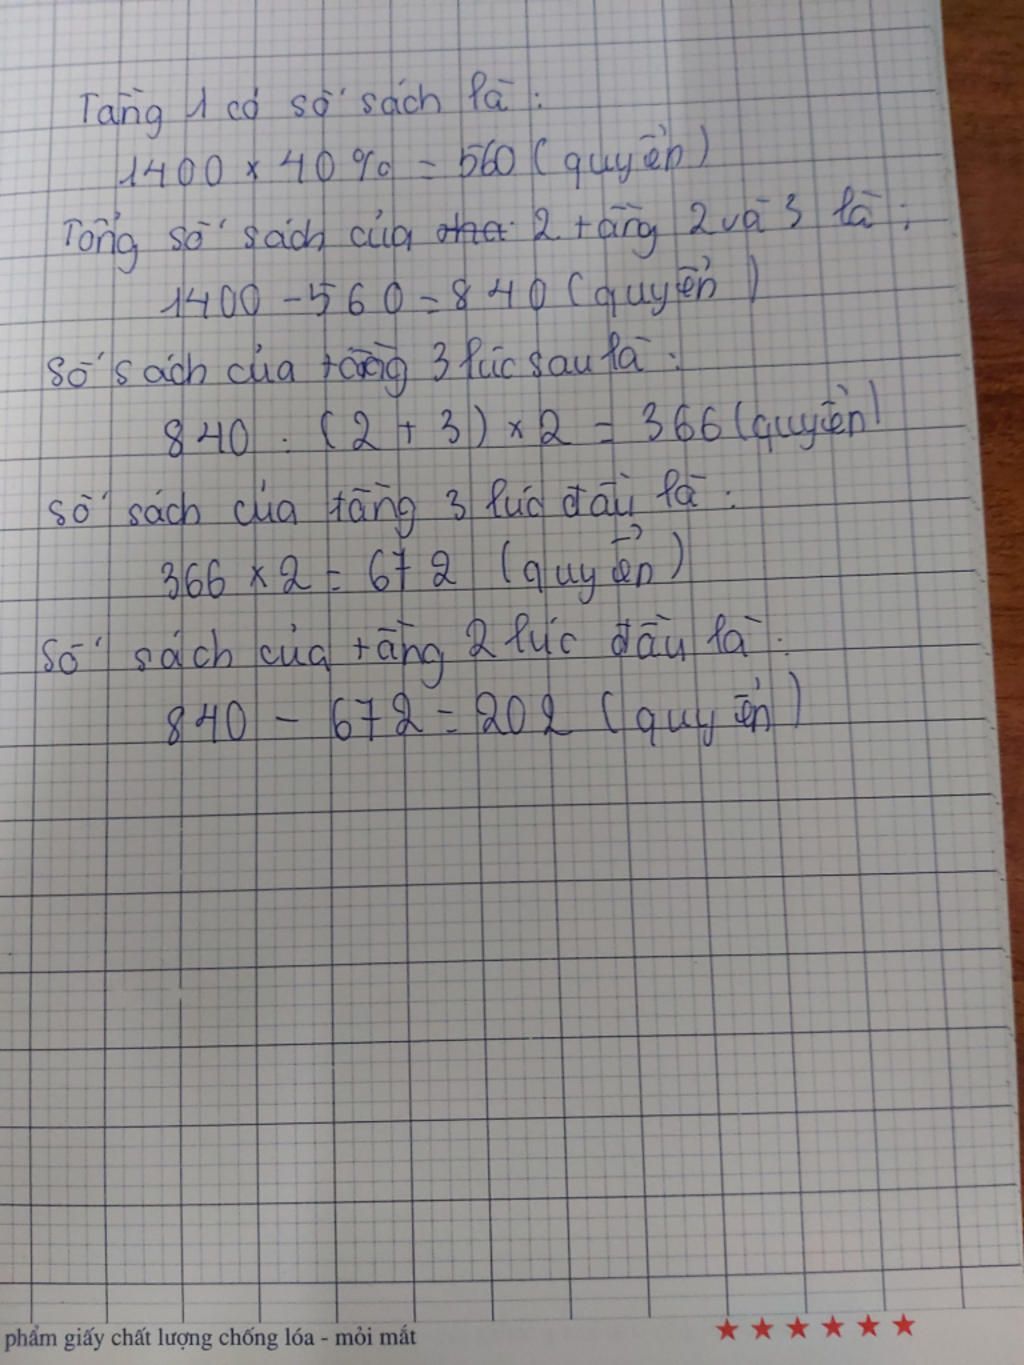 Tầng 1 có số sách là :
1400 × 40 % = 560 ( quyển )
Tổng số sách của 2 tầng 2 và 3 là :
1400 - 560 = 840 ( quyển )
số sách của tầng 3 lúc sau là :
840 : ( 2 + 3 ) × 2 = 366 ( quyển )
số sách của tầng 3 lúc đầu là :
366 × 2 = 672 ( quyển )
số sách của tầng 2 lúc đầu là :
840 - 672 = 202 ( quyển )
phẩm giấy chất lượng chống lóa - mỏi mắt